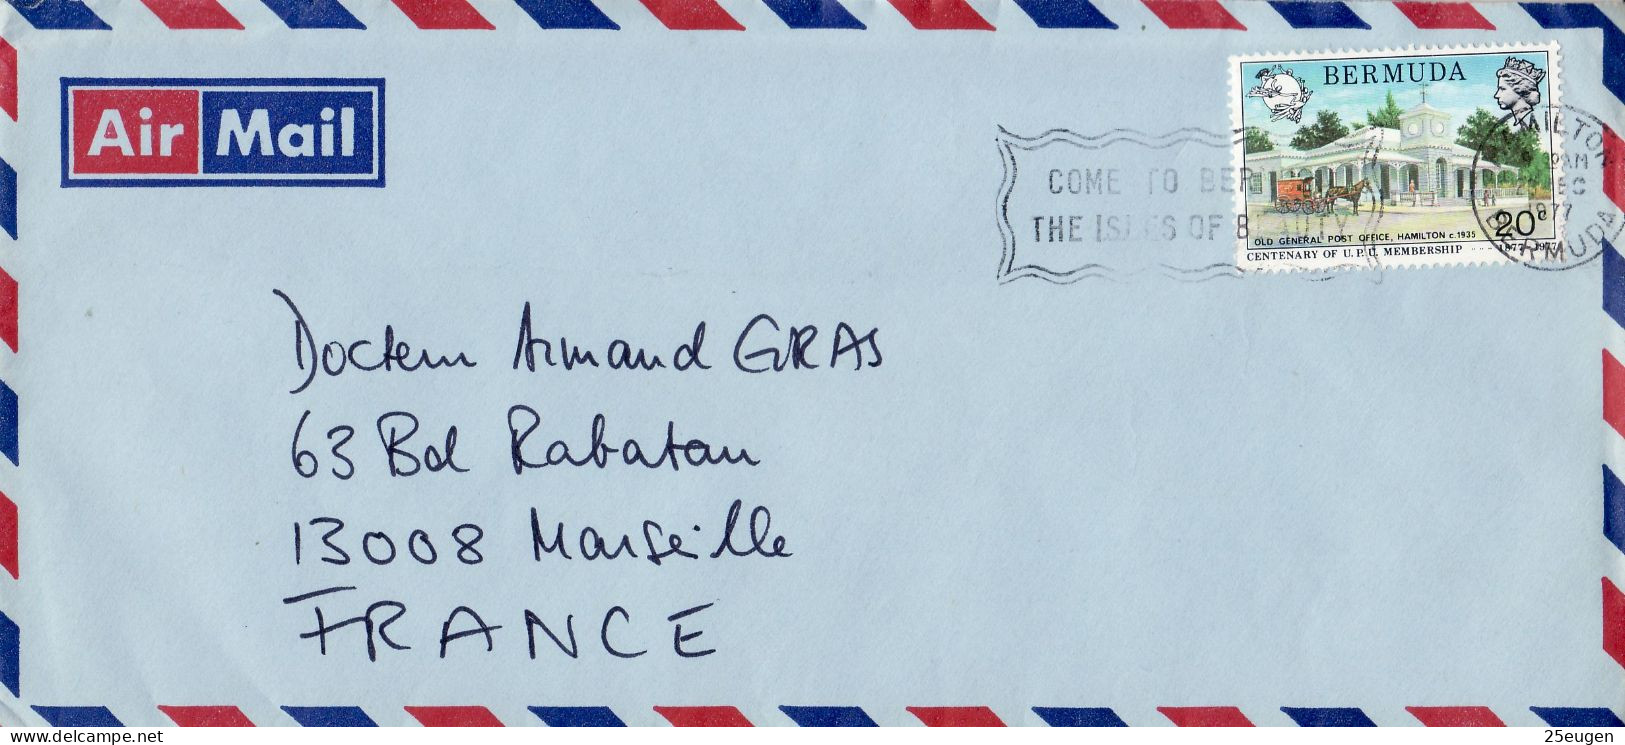 Air Mail
BERMUDA
COME TO BER
THE ISLES OF BEAUTY
HAMILTON
AM
DEC
1977
BERMUDA
20c
OLD GENERAL POST OFFICE, HAMILTON c.1935
CENTENARY OF U.P.U. MEMBERSHIP 1877-1977
Docteur Armand GRAS
63 Bd Rabatau
13008 Marseille
FRANCE
www.delcampe.net
25eugen